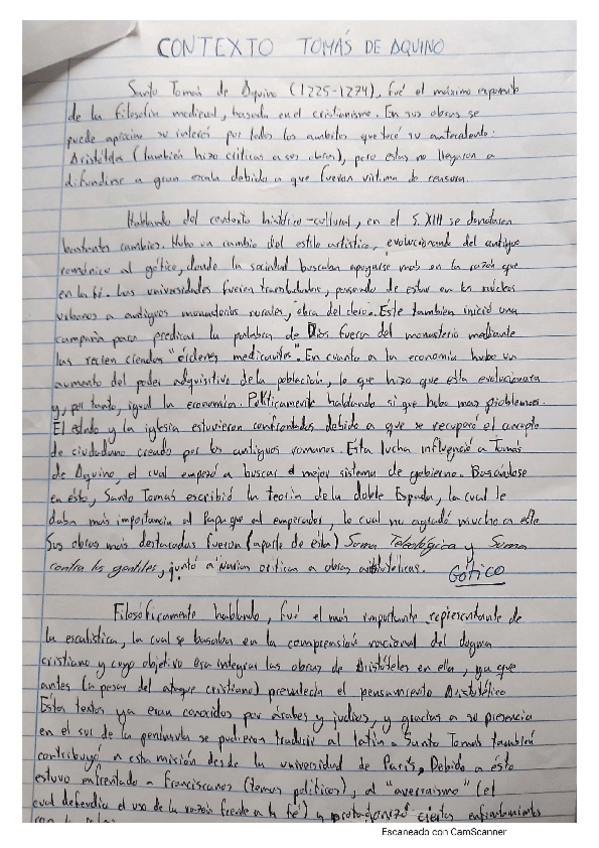 CONTEXTO TOMÁS DE AQUINO
Santo Tomás de Aquino (1225-1274), fué el máximo exponente
de la filosofía medieval, basada en el cristianismo. En sus obras se
puede apreciar su interés por todos los ámbitos que tocó su antecedente:
Aristóteles (también hizo críticas a sus obras), pero estas no llegaron a
difundirse a gran escala debido a que fueron víctima de censura.
Hablando del contexto histórico-cultural, en el S. XIII se
bastantes cambios. Hubo un cambio del estilo artístico, evolucionando del antiguo
románico al gótico, donde la sociedad buscaba apoyarse más en la razón que
en la fé. Las universidades fueron trasladadas, pasando de estar en los núcleos
urbanos a antiguos monasterios rurales, obra del clero. Este también inició una
campaña para predicar la palabra de Dios fuera del monasterio mediante
las recién creadas "órdenes medicantes". En cuanto a la economía hubo un
aumento del poder adquisitivo de la población, lo que hizo que esta evolucionara
y, por tanto, igual la economía. Políticamente hablando si que hubo mas problemas.
El estado y la iglesia estuvieron confrontados debido a que se recuperó el concepto
de ciudadano creado por los antiguos romanos. Esta lucha influenció a Tomás
de Aquino, el cual empezó a buscar el mejor sistema de gobierno. Basándose
en ésto, Santo Tomás escribió la teoría de la doble Espada, la cual le
daba más importancia al Papa que al emperador, lo cual no agradó mucho a este
Sus obras más destacadas fueron (aparte de esta) Suma Teleológica y Suma
contra los gentiles, juntó a varias críticas a obras aristotélicas. GÓTICO
Filosóficamente hablando, fué el más importante representante de
la escolística, la cual se basaba en la comprensión racional del dogma
cristiano y cuyo objetivo era integrar las obras de Aristóteles en ella, ya que
antes (a pesar del ataque cristiano) prevalecía el pensamiento Aristotélico
Estos textos ya eran conocidos por árabes y judíos, y gracias a su presencia
en el sur de la península se pudieron traducir al latín. Santo Tomás también
contribuyó a esta misión desde la universidad de París. Debido a ésto
estuvo enfrentado a Franciscanos (temas políticos), al "averroismo" (el
cual defendía el uso de la razón frente a la fé) y protagonizó ciertos enfrentamientos
con la
Escaneado con CamScanner